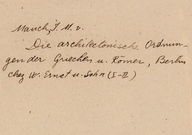 Mauch, J. M. v.
Die architektonische Ordnun-
gen der Griechen u. Römer, Berlin
chez W. Ernst u. Sohn (I-II)